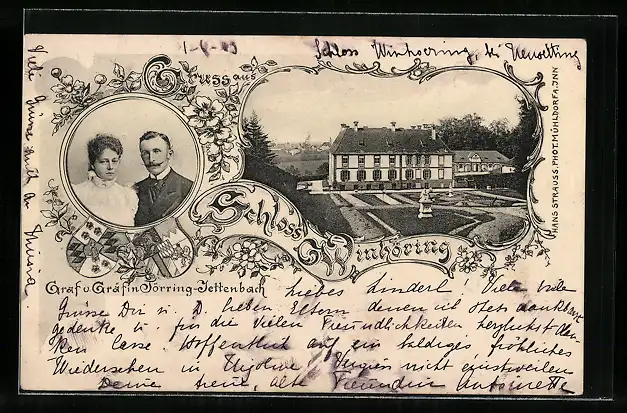 1-6-03
Schloss Winhoering, bei Neuoetting
Gruss aus
Schloss Winhöring
HANS STRAUSS. PHOT. MÜHLDORF A. INN
Graf u. Gräfin Törring-Jettenbach
Liebes Kinderl! Viele viele
Grüsse Dir u. D. lieben Eltern denen ich stets dankbar
gedenke u. für die vielen Freundlichkeiten herzlichst
ken lasse. Hoffentlich auf ein baldiges fröhliches
Wiedersehen in Vergiss nicht einstweilen
Deine treue, alte Freundin Antoinette
Viele Grüsse auch an